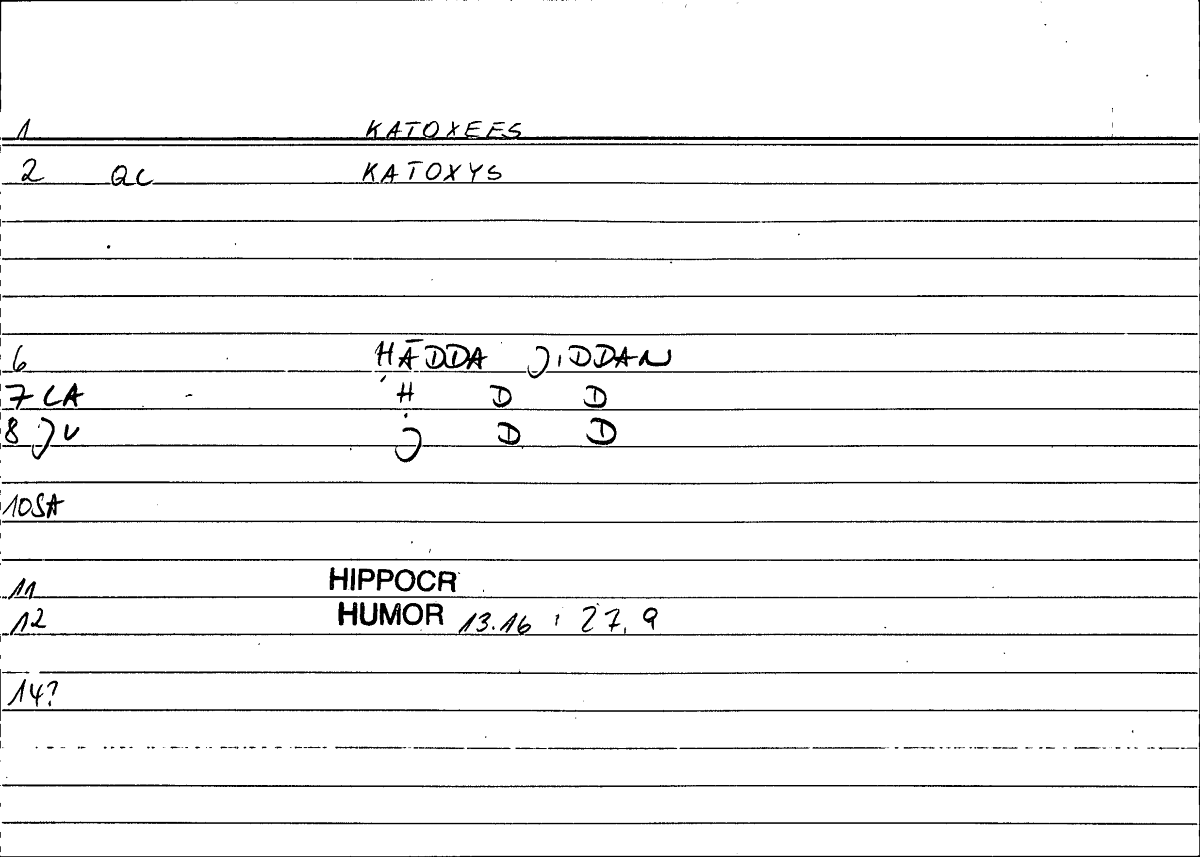 1 KATOXEES
2 QC KATOXYS
6 ḤĀDDA JIDDAN
7 CA Ḥ D D
8 JU J D D
10 SA
11 HIPPOCR
12 HUMOR 13.16 ; 27,9
14?